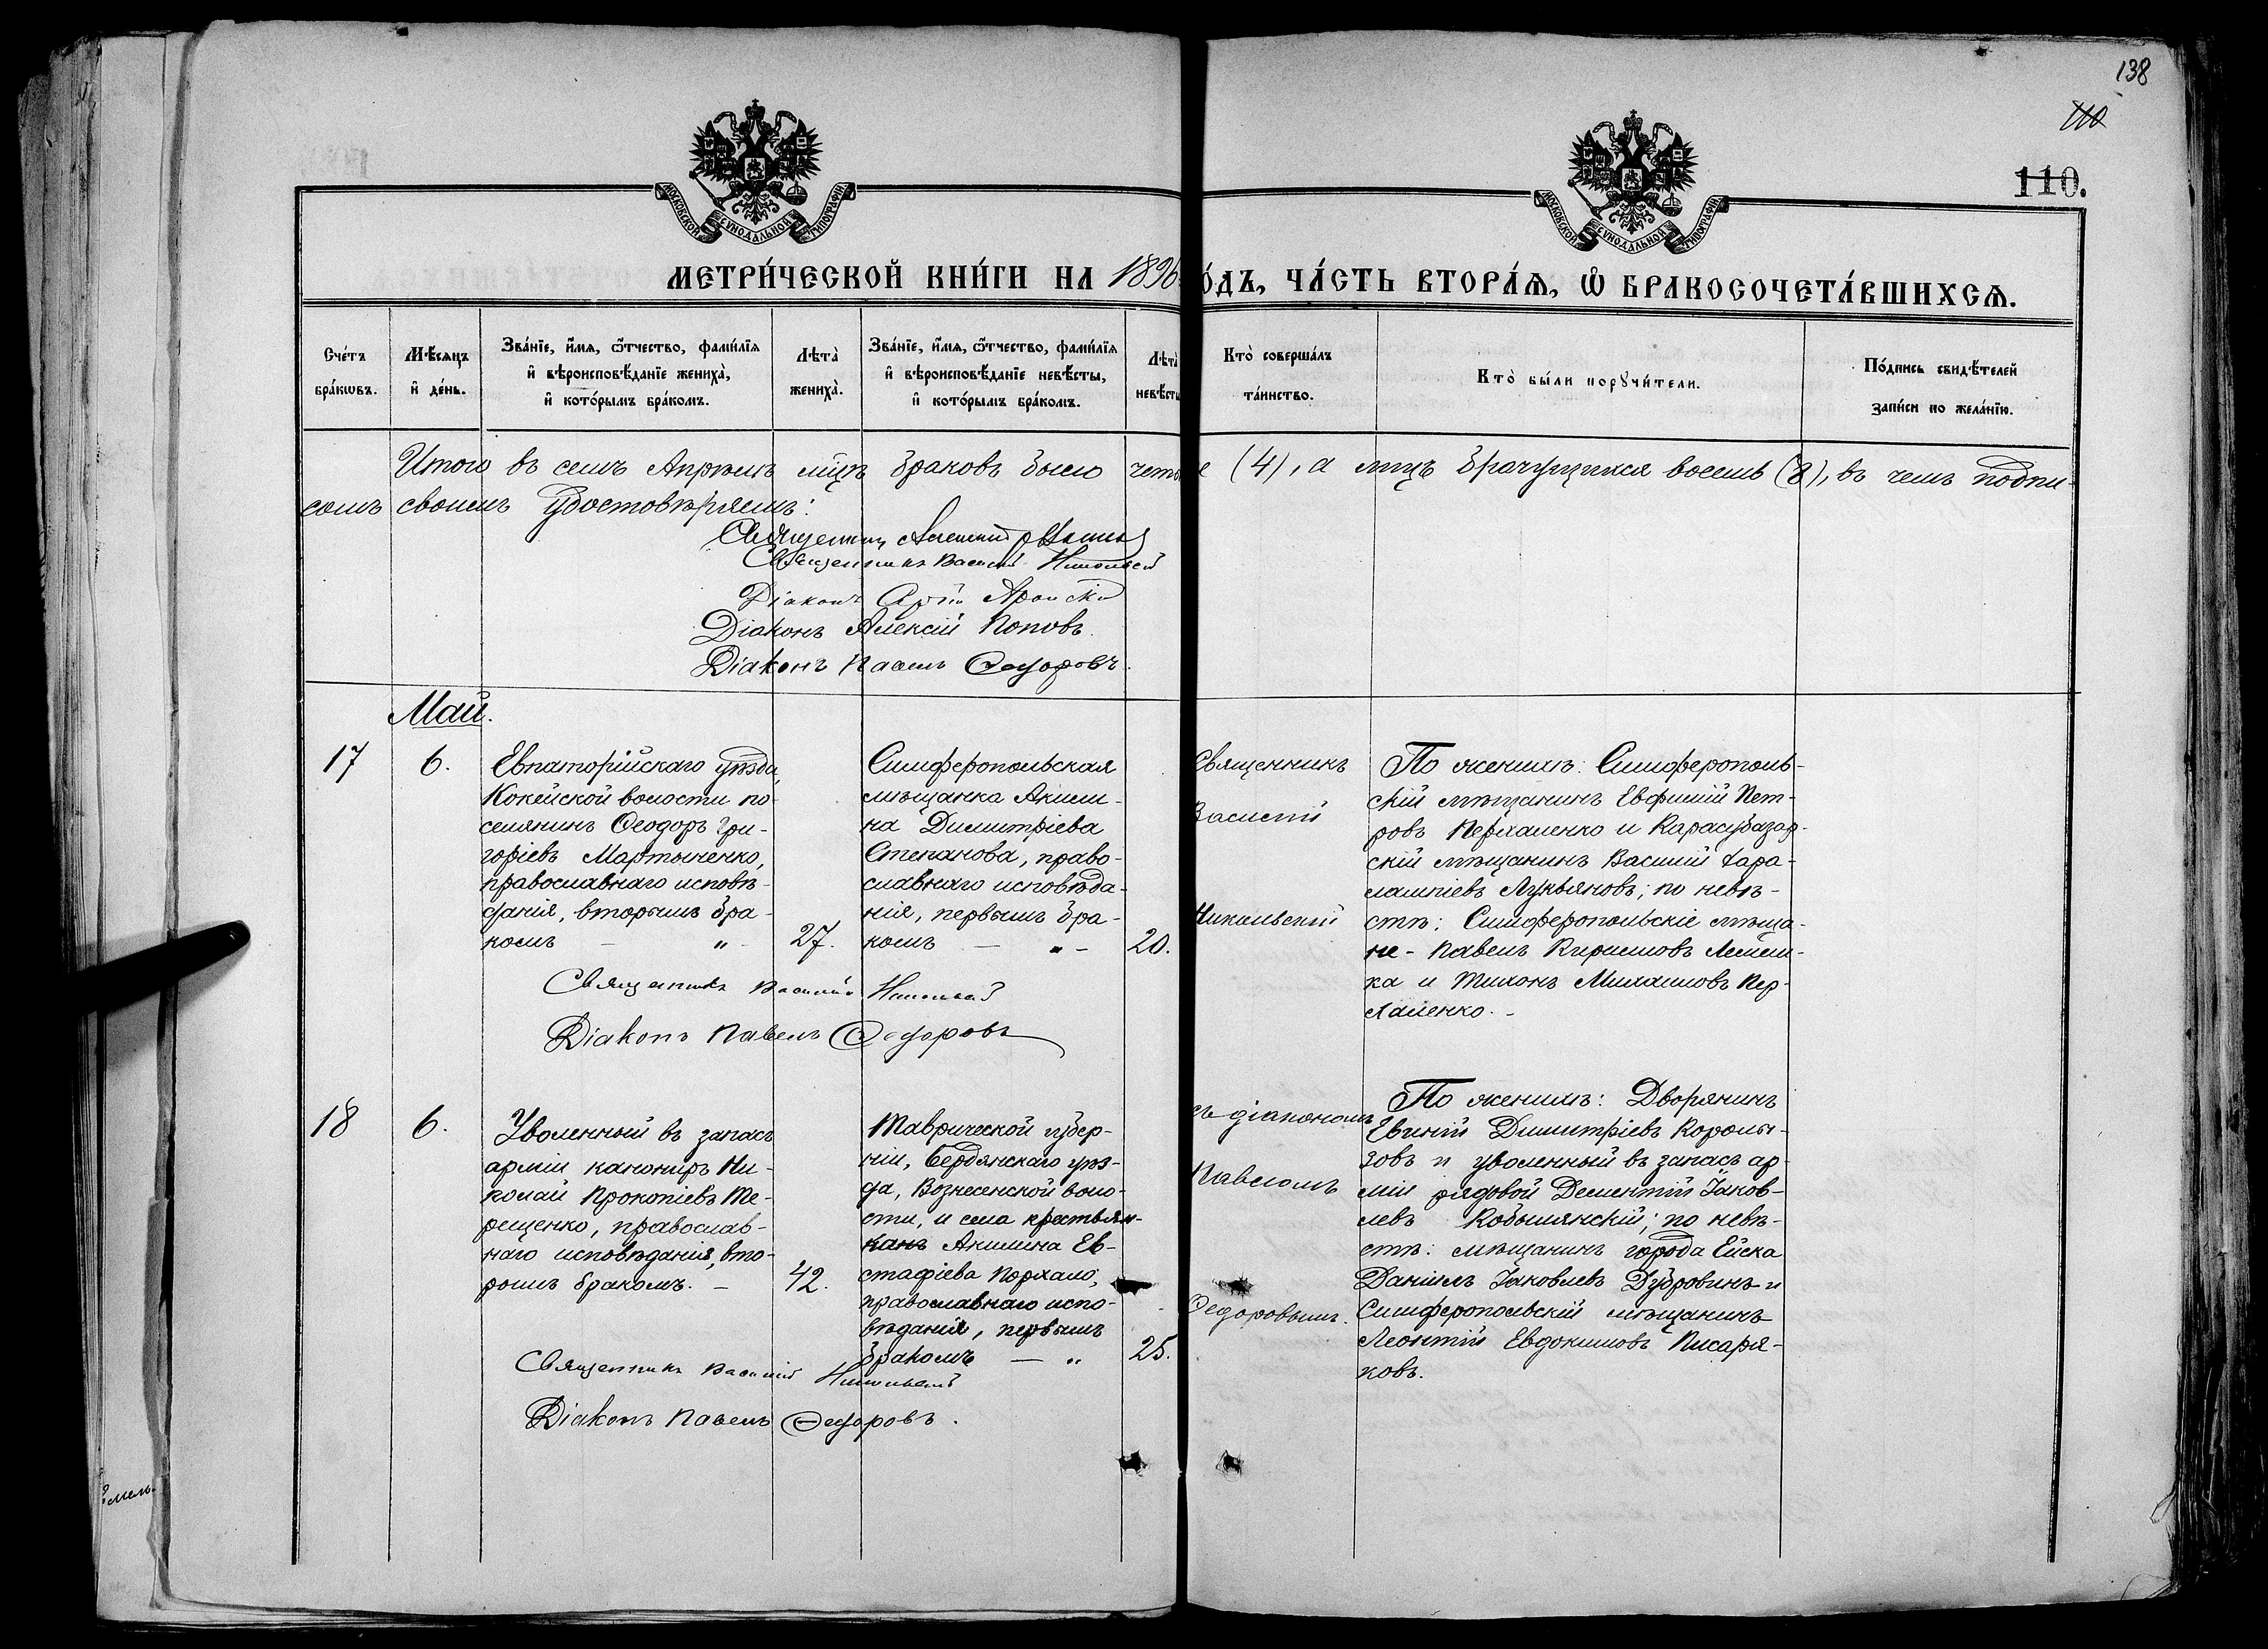 138
110
110.
МОСКОВСКОЙ СѴНОДАЛЬНОЙ ТИПОГРАФІИ
МОСКОВСКОЙ СѴНОДАЛЬНОЙ ТИПОГРАФІИ
МЕТРИ́ЧЕСКОЙ КНИ́ГИ НА 1896 О́ДЪ, ЧА́СТЬ ВТОРА́Ѧ, Ѡ҆ БРАКОСОЧЕТА́ВШИХСѦ.
Счéтъ
брáкѡвъ.
Мѣ́сяцъ
и҆ дéнь.
Звáнїе, и҆́мя, ѻ҆́тчество, фамѝлїя
и҆ вѣроисповѣ́данїе женихà,
и҆ котóрымъ брáкомъ.
Лѣтà
женихà.
Звáнїе, и҆́мя, ѻ҆́тчество, фамѝлїя
и҆ вѣроисповѣ́данїе невѣ́сты,
и҆ котóрымъ брáкомъ.
Лѣтà
невѣ́сты
Ктò совершáлъ
тáинство.
Ктò бы́ли порꙋчи́тели.
Пóдпись свидѣ́телей
зáписи по желáнїю.
Итого въ семъ Апрѣлѣ мцѣ браковъ было четы е (4), а лицъ брачущихся восемь (8), въ чемъ подпи-
сомъ своимъ удостовѣряемъ:
Священникъ
Священникъ Василій Никольскій
Діаконъ
Діаконъ Алексій Поповъ.
Діаконъ Павелъ Ѳедоровъ.
Май.
17
6.
Евпаторійскаго уѣзда,
Кокейской волости по-
селянинъ Ѳеодоръ Гри-
горіевъ Мартыненко,
православнаго исповѣ-
данія, вторымъ бра-
комъ — „ -
27.
Симферопольская
мѣщанка Акили-
на Димитріева
Степанова, право-
славнаго исповѣда-
нія, первымъ бра-
комъ — „ -
20.
Священникъ
Василій
Никольскій
По женихѣ: Симферополь-
скій мѣщанинъ Евфимій Пет-
ровъ Перхаленко и Карасубазар-
скій мѣщанинъ Василій Хара-
лампіевъ Лукьяновъ; по невѣ-
стѣ: Симферопольскіе мѣща-
не - Павелъ Кирилловъ Лемеш-
ка и Тихонъ Михаиловъ Пер-
халенко. -
Священникъ Василій Никольскій
Діаконъ Павелъ Ѳедоровъ
18
6.
Уволенный въ запасъ
арміи канониръ Ни-
колай Прокопіевъ Те-
рещенко, православ-
наго исповѣданія, вто-
рымъ бракомъ. —
42.
Таврической губер-
ніи, Бердянскаго уѣз-
да, Вознесенской воло-
сти, и села крестьян-
канъ Акилина Ев-
стафіева Порхало,
православнаго испо-
вѣданія, первымъ
бракомъ — „
25.
съ діакономъ
Павломъ
Ѳедоровымъ.
По женихѣ: Дворянинъ
Евгеній Димитріевъ Королы-
зовъ и уволенный въ запасъ ар-
міи рядовой Дементій Іаков-
левъ Кобылянскій; по невѣ-
стѣ: мѣщанинъ города Ейска
Даніилъ Іаковлевъ Дубровинъ и
Симферопольскій мѣщанинъ
Леонтій Евдокимовъ Писаря-
ковъ.
Священникъ Василій Никольскій
Діаконъ Павелъ Ѳедоровъ.